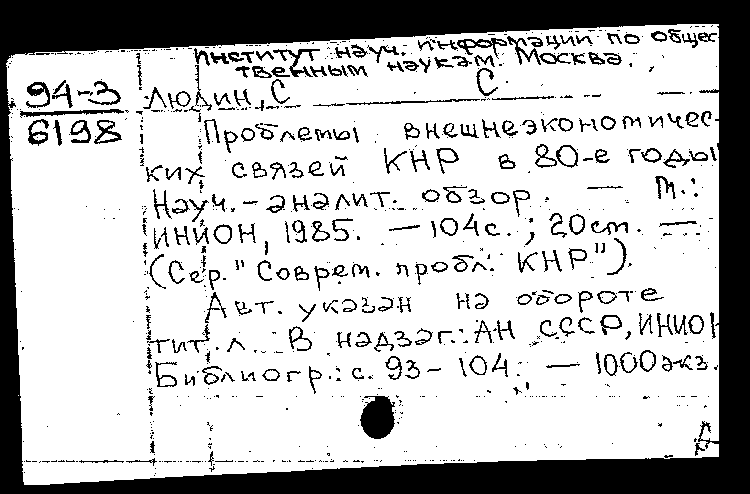 Институт науч. информации по общес-
твенным наукам. Москва.
94-3
6198
Людин, С С
Проблемы внешнеэкономичес-
ких связей КНР в 80-е годы
Науч.-аналит. обзор. — М.:
ИНИОН, 1985. — 104с. ; 20cm. —
(Сер. "Соврем. пробл. КНР").
Авт. указан на обороте
тит. л. В надзаг.: АН СССР, ИНИОН
Библиогр.: с. 93-104. — 1000экз.